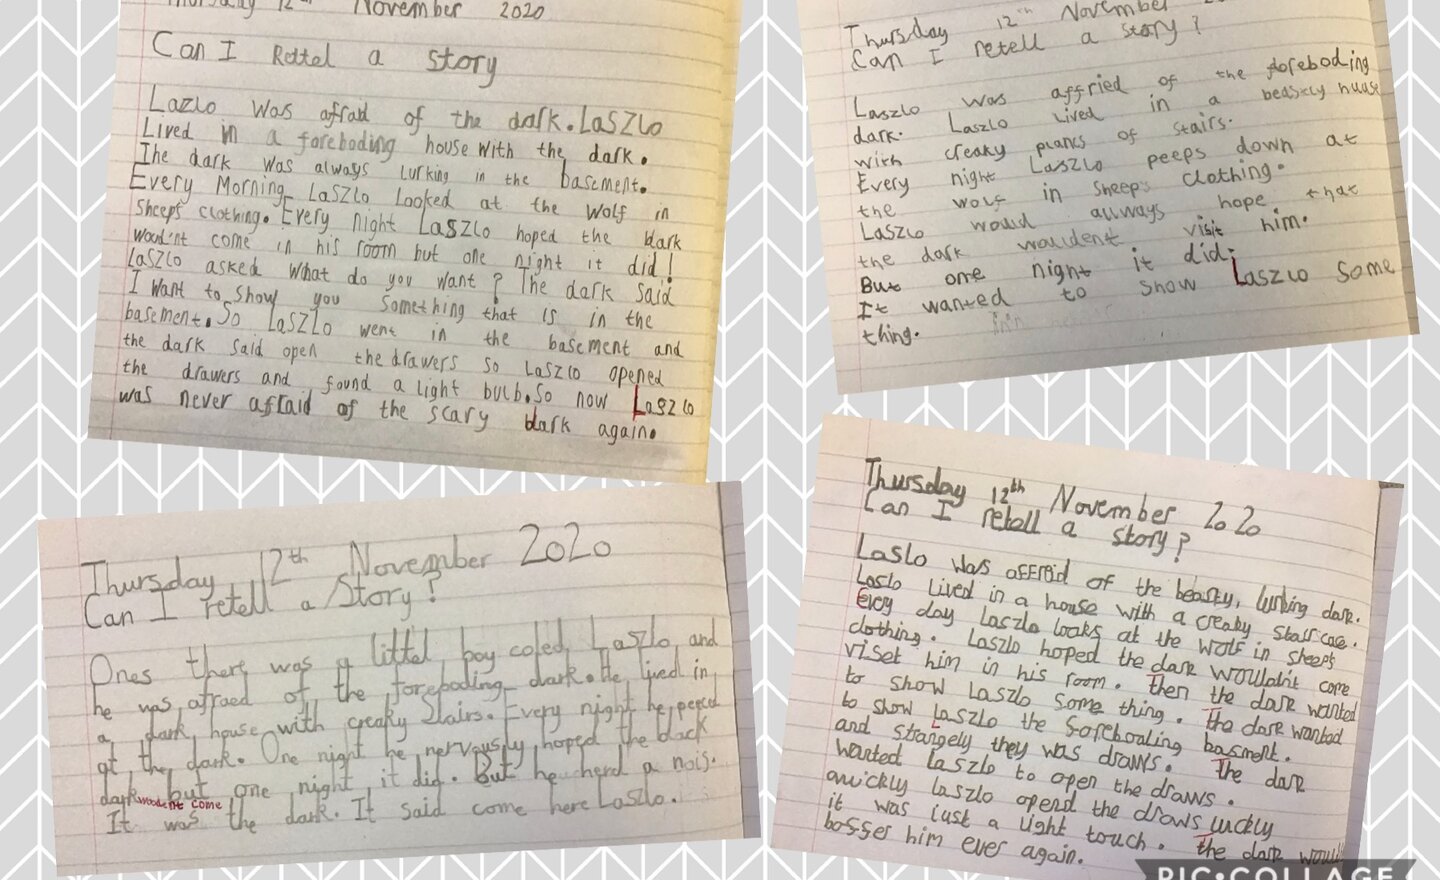 Thursday 12th November 2020
Can I Rettel a Story
Lazlo was afraid of the dark. LaSZlo
Lived in a foreboding house with the dark.
The dark was always lurking in the basement.
Every Morning LaSzlo Looked at the wolf in
Sheeps clothing. Every night LaSzlo hoped the dark
would'nt come in his room but one night it did!
LaSZlo asked what do you want? The dark said
I want to show you something that is in the
basement. So LaSZlo went in the basement and
the dark said open the drawers so LaSzlo opened
the drawers and found a light bulb. So now LaSzlo
was never afraid of the scary dark again.
Thursday 12th November
Can I retell a story?
Laszlo was affried of the foreboding
dark. Laszlo lived in a beastly huase
with creaky plancs of stairs.
Every night Laszlo peeps down at
the wolf in Sheeps clothing.
Laszlo would allways hope that
the dark wouldent visit him.
But one night it did.
It wanted to show Laszlo Some
thing.
Thursday 12th November 2020
Can I retell a Story?
Ones there was a littel boy coled Laszlo and
he was afraed of the foreboding dark. He lived in
a dark house with creaky Stairs. Every night he peeed
at the dark. One night he nervously hoped the black
dark woodent come but one night it did. But he herd a nois.
It was the dark. It said come here Laszlo.
Thursday 12th November 2020
Can I retell a story?
Laslo was affraid of the beasty, lurking dark.
Laslo Lived in a house with a creaky Staircase.
Every day Laszlo looks at the wolf in sheeps
clothing. Laszlo hoped the dark wouldn't come
viset him in his room. then the dark wanted
to show Laszlo Some thing. the dark wanted
to show Laszlo the foreboaling basment.
and strangely they was draws. The dark
wanted Laszlo to open the draws.
quickly Laszlo opend the draws luckly
it was just a light touch. the dark
bosser him ever again.
PIC•COLLAGE